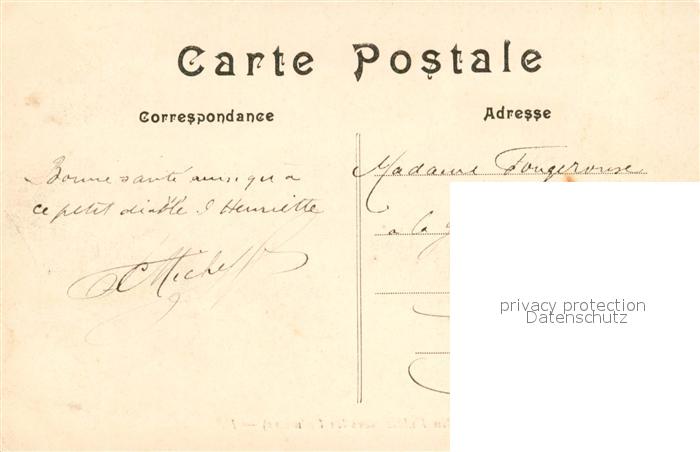 Carte Postale
Correspondance
Adresse
Bonne santé ainsi qu'à
ce petit diable d'Henriette
Michel
Madame Fougerouse
à la
privacy protection
Datenschutz